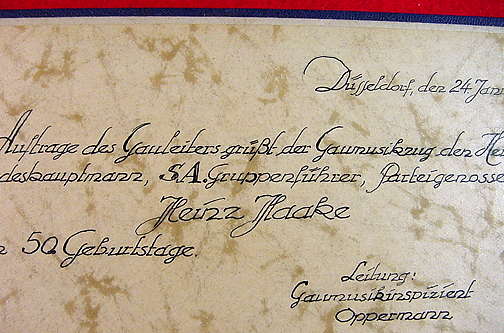 Düsseldorf, den 24 Jan
Auftrage des Gauleiters grüßt der Gaumusikzug den Her
deshauptmann, S.A. Gruppenführer, Parteigenosse
Heinz Haake
50. Geburtstage.
Leitung:
Gaumusikinspizient
Oppermann